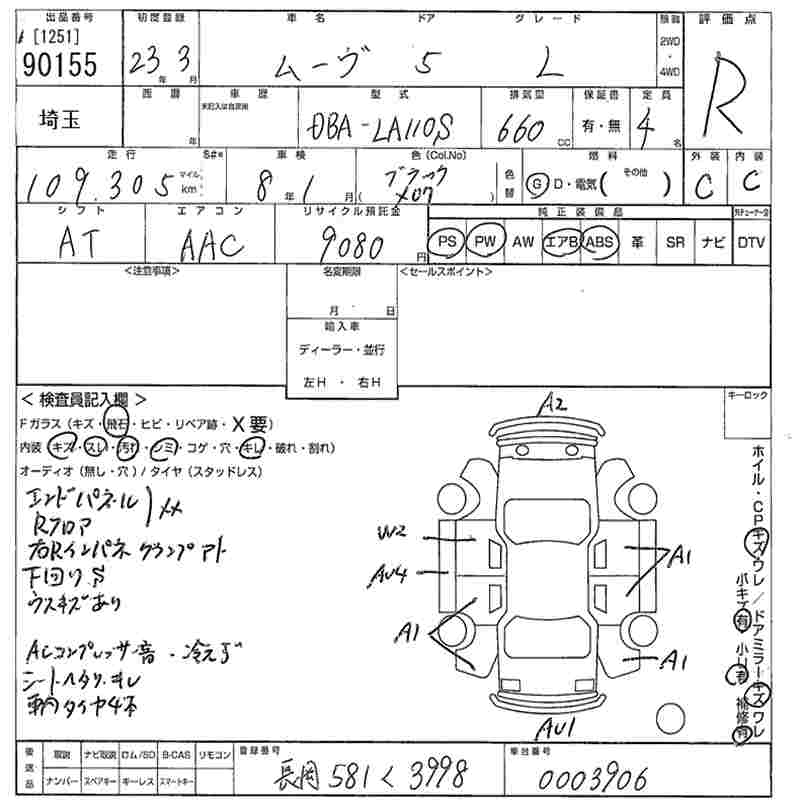 出品番号 初度登録 車名 ドア グレード 駆動 評価点
[1251]
90155 23年 3月 ムーヴ 5 L 2WD・4WD R
埼玉 西暦 年 車歴 未記入は自家用 型式 排気量 保証書 定員
DBA-LA110S 660cc 有・無 4名
走行 S#* 車検 色(Col.No) 色替 燃料 外装 内装
109,305 マイル km 8年 1月 ブラック G D・電気( その他 ) C C
シフト エアコン リサイクル預託金 純正装備品
AT AAC 9080円 PS PW AW エアB ABS 革 SR ナビ DTV
<注意事項> 名変期限 <セールスポイント>
月 日
輸入車
ディーラー・並行
左H・右H
<検査員記入欄> キーロック
Fガラス(キズ・飛石・ヒビ・リペア跡・X要)
内装(キズ・スレ・汚れ・シミ・コゲ・穴・キレ・破れ・割れ)
オーディオ(無し・穴)/タイヤ(スタッドレス)
エンドパネル
Rフロア XX
右Rインパネ クランプアト
下回り S
ウスキズあり
ACコンプレッサ音・冷えず
シートヘタリ、キレ
車内タイヤ4本
A2
W2
AU4
A1
A1
A1
AU1
ホイル・CPキズウレ/ドアミラーキズワレ
小キズ有 小U有 補修有
後送品 取説 ナビ取説 ロム/SD B-CAS リモコン 登録番号 車台番号
ナンバー スペアキー キーレス スマートキー 長岡 581 く 3998 0003906